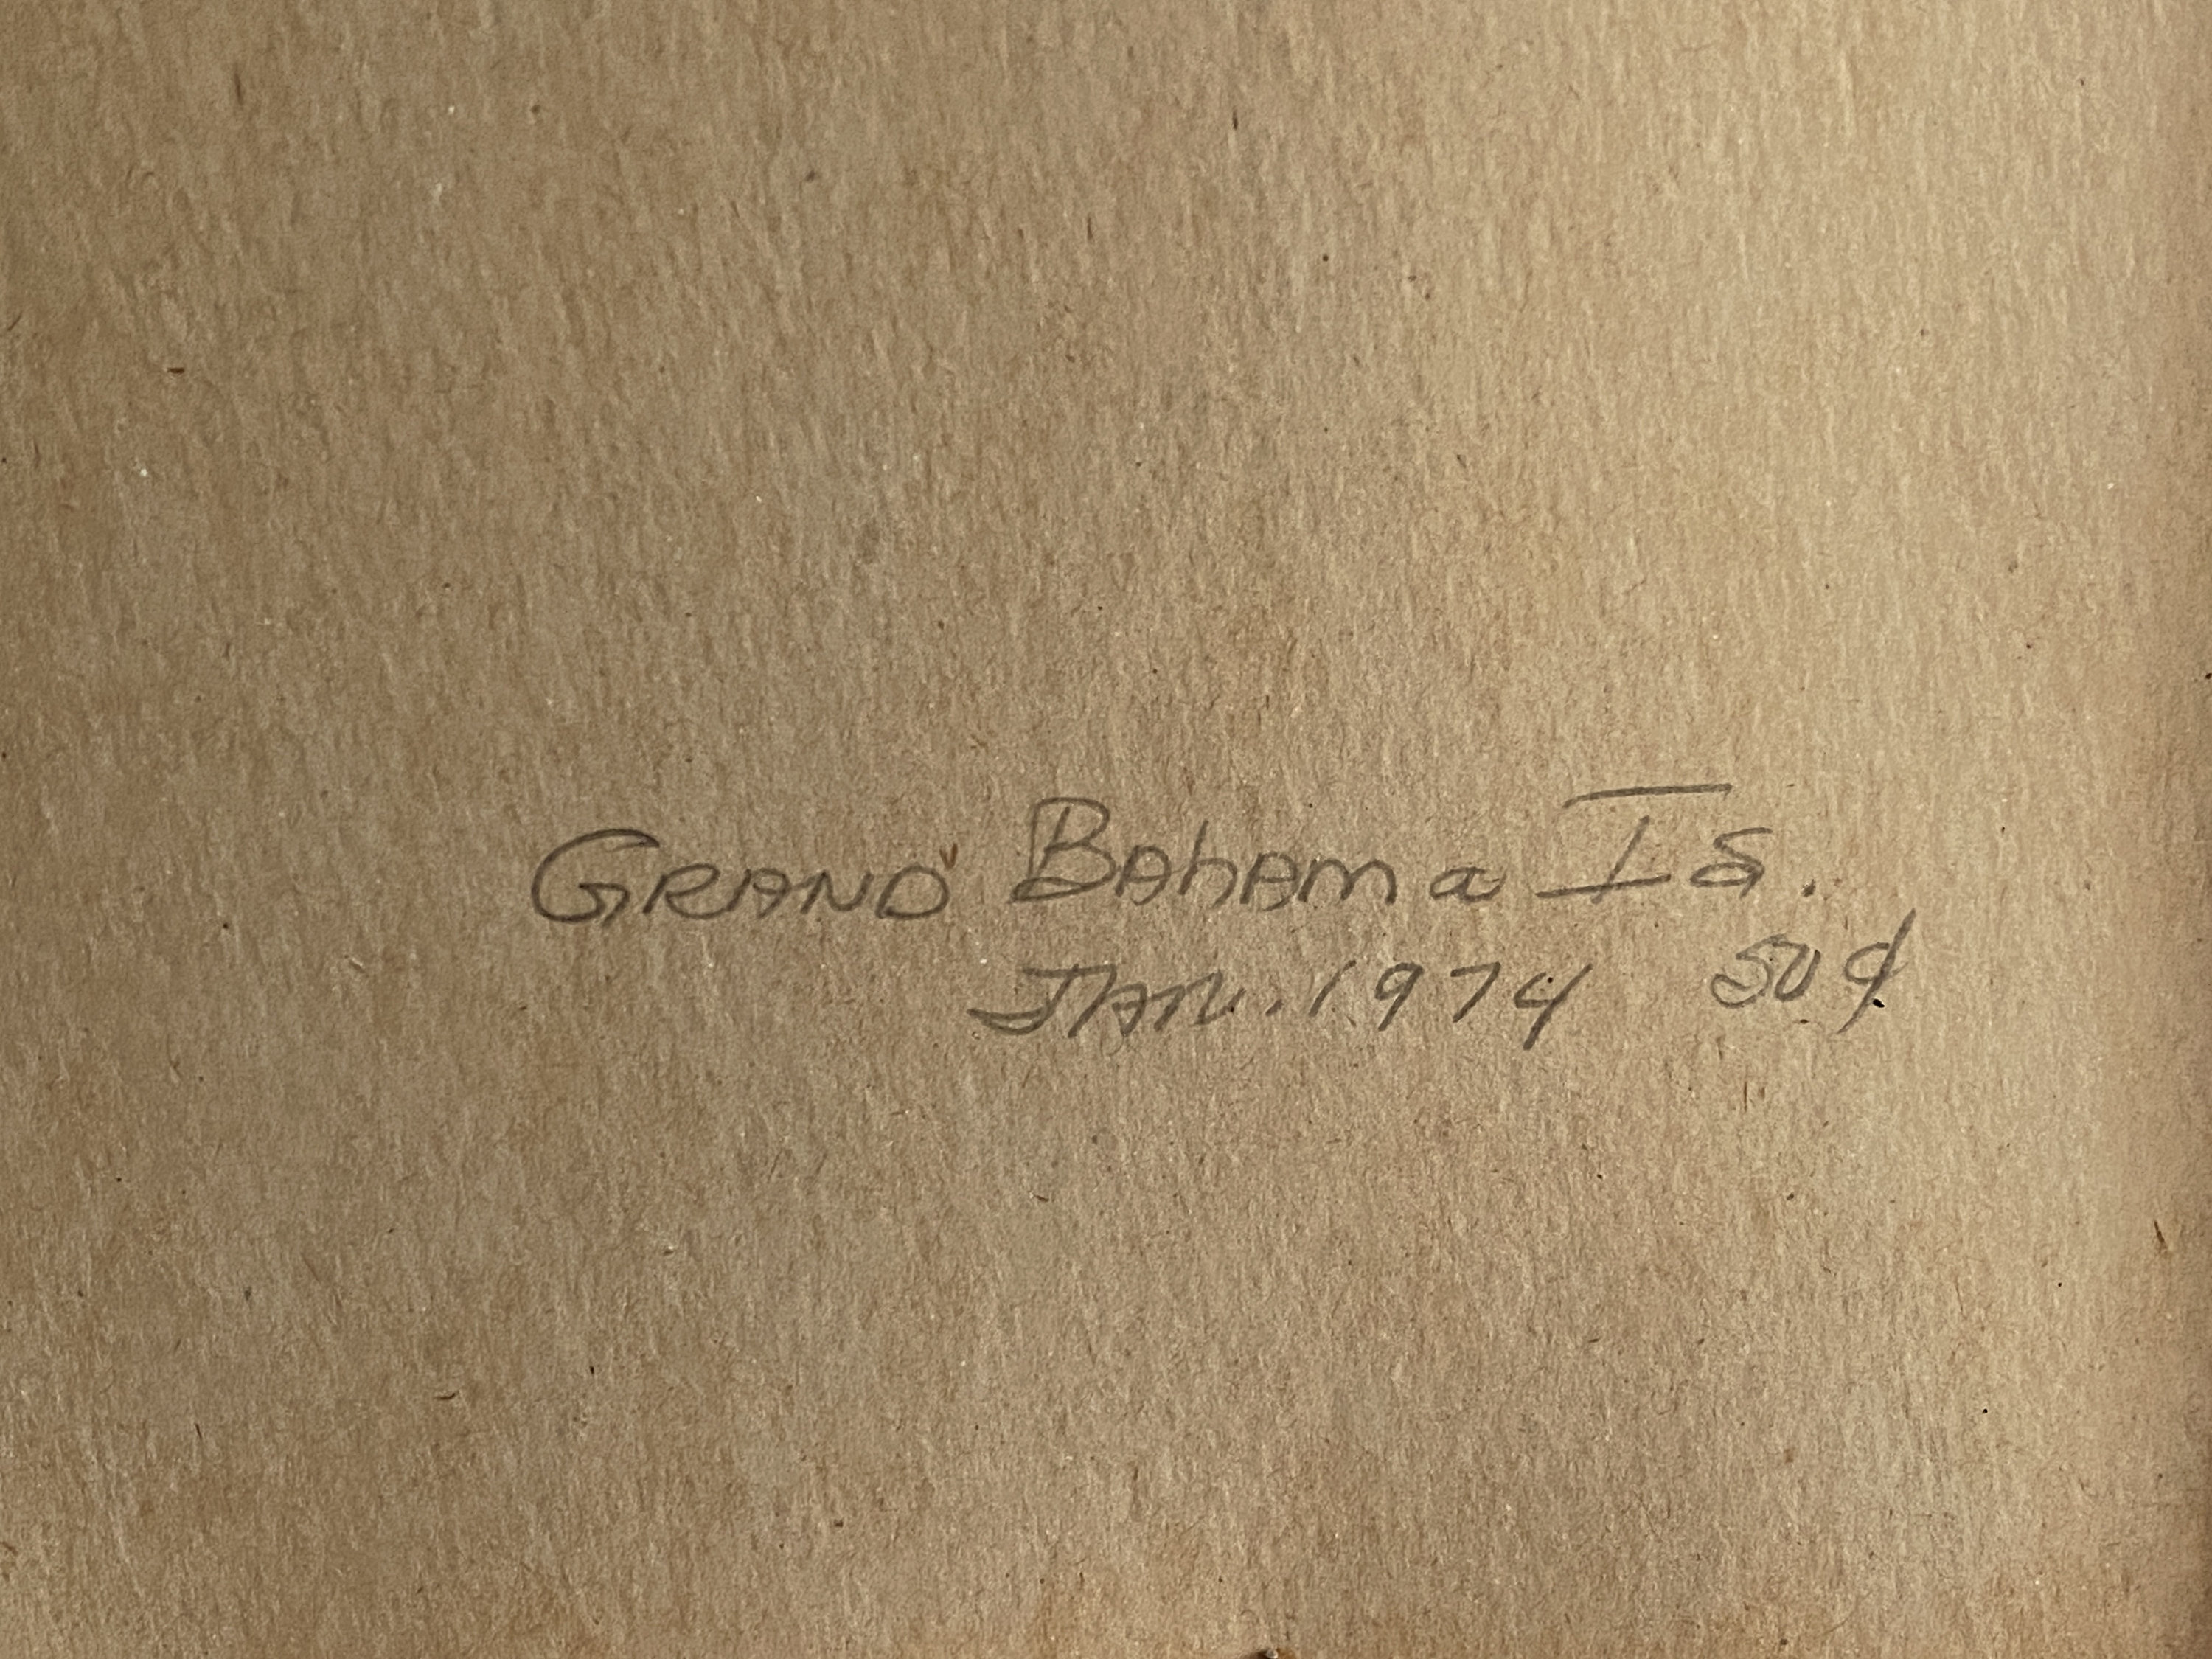 GRAND BAhAMa IS.
JAN. 1974 50¢